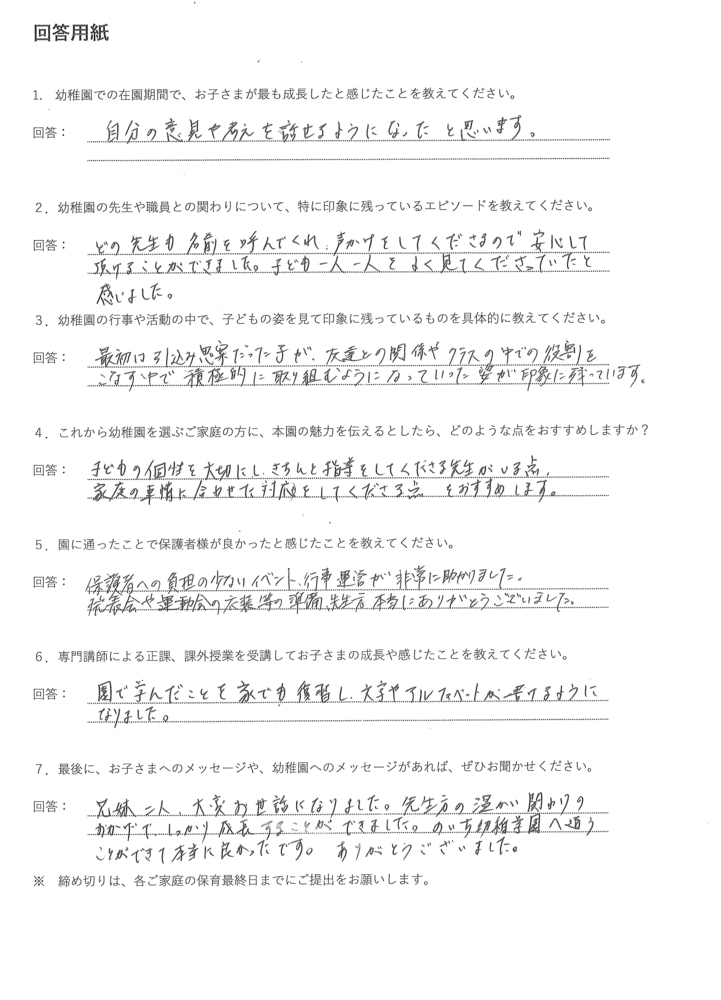 回答用紙
1. 幼稚園での在園期間で、お子さまが最も成長したと感じたことを教えてください。
回答： 自分の意見や考えを話せるようになったと思います。
2．幼稚園の先生や職員との関わりについて、特に印象に残っているエピソードを教えてください。
回答： どの先生も名前を呼んでくれ、声かけをしてくださるので安心して
預けることができました。子ども一人一人をよく見てくださっていたと
感じました。
3．幼稚園の行事や活動の中で、子どもの姿を見て印象に残っているものを具体的に教えてください。
回答： 最初は引込み思案だった子が、友達との関係やクラスの中での役割を
こなす中で積極的に取り組むようになっていった姿が印象に残っています。
4．これから幼稚園を選ぶご家庭の方に、本園の魅力を伝えるとしたら、どのような点をおすすめしますか？
回答： 子どもの個性を大切にし、きちんと指導をしてくださる先生がいる点、
家庭の事情に合わせた対応をしてくださる点をおすすめします。
5．園に通ったことで保護者様が良かったと感じたことを教えてください。
回答： 保護者への負担の少ないイベント、行事運営が非常に助かりました。
発表会や運動会の衣装等の準備、先生方本当にありがとうございました。
6．専門講師による正課、課外授業を受講してお子さまの成長や感じたことを教えてください。
回答： 園で学んだことを家でも復習し、文字やアルファベットが書けるように
なりました。
7．最後に、お子さまへのメッセージや、幼稚園へのメッセージがあれば、ぜひお聞かせください。
回答： 兄妹二人、大変お世話になりました。先生方の温かい関わりの
おかげで、しっかり成長することができました。のいち幼稚園へ通う
ことができて本当に良かったです。 ありがとうございました。
※ 締め切りは、各ご家庭の保育最終日までにご提出をお願いします。